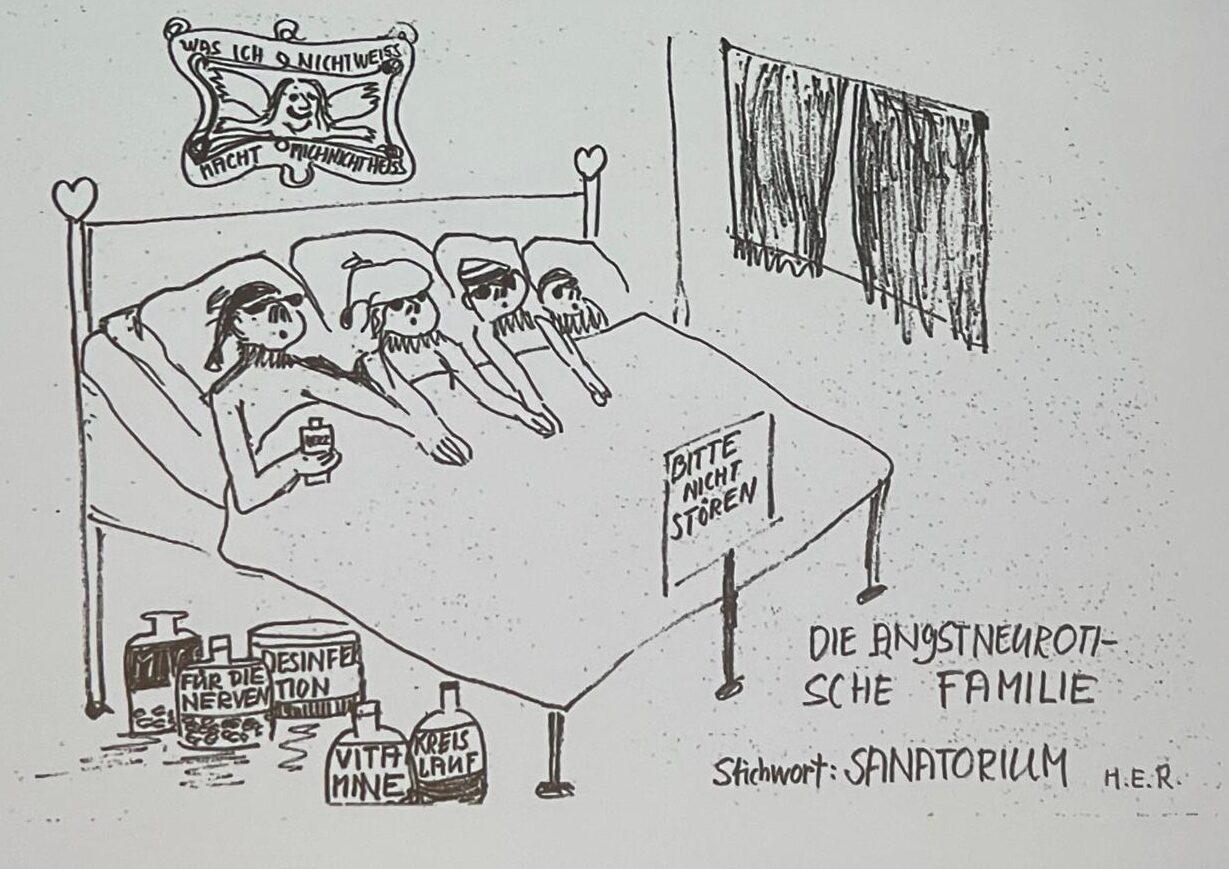 WAS ICH NICHT WEISS
MACHT MICH NICHT HEISS
BITTE
NICHT
STÖREN
FÜR DIE
NERVEN
DESINFEK
TION
VITA-
MINE
KREIS
LAUF
DIE ANGSTNEUROTI-
SCHE FAMILIE
Stichwort: SANATORIUM
H.E.R.